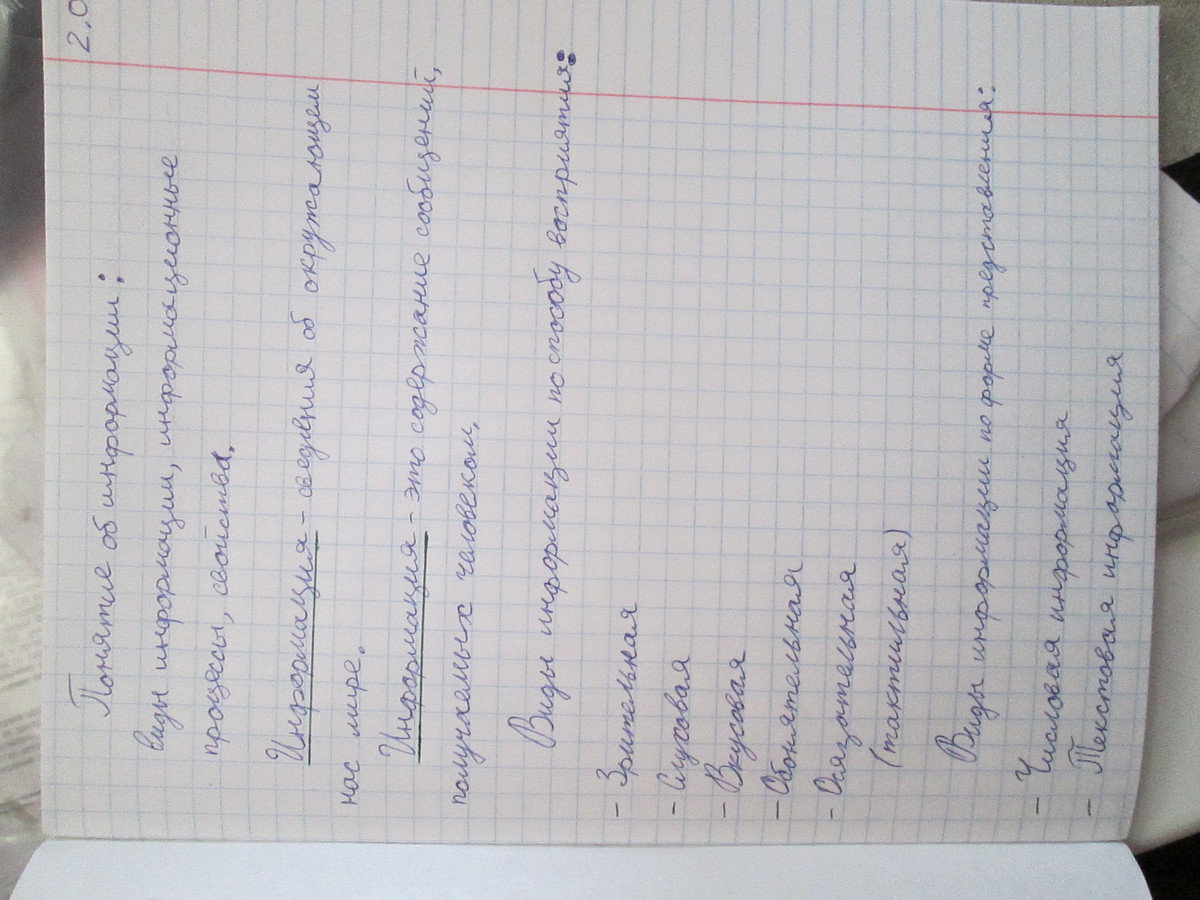 2.0
Понятие об информации:
виды информации, информационные
процессы, свойства.
Информация - сведения об окружающем
нас мире.
Информация - это содержание сообщений,
получаемых человеком.
Виды информации по способу восприятия:
- Зрительная
- Слуховая
- Вкусовая
- Обонятельная
- Осязательная
(тактильная)
Виды информации по форме представления:
- Числовая информация
- Текстовая информация